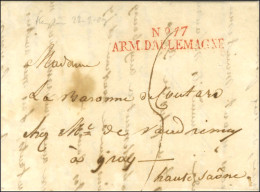 N.º 17
ARM. D'ALLEMAGNE
Madame
La Baronne de Coutard
chez Mr. de Vaudrimey
à gray
haute saône